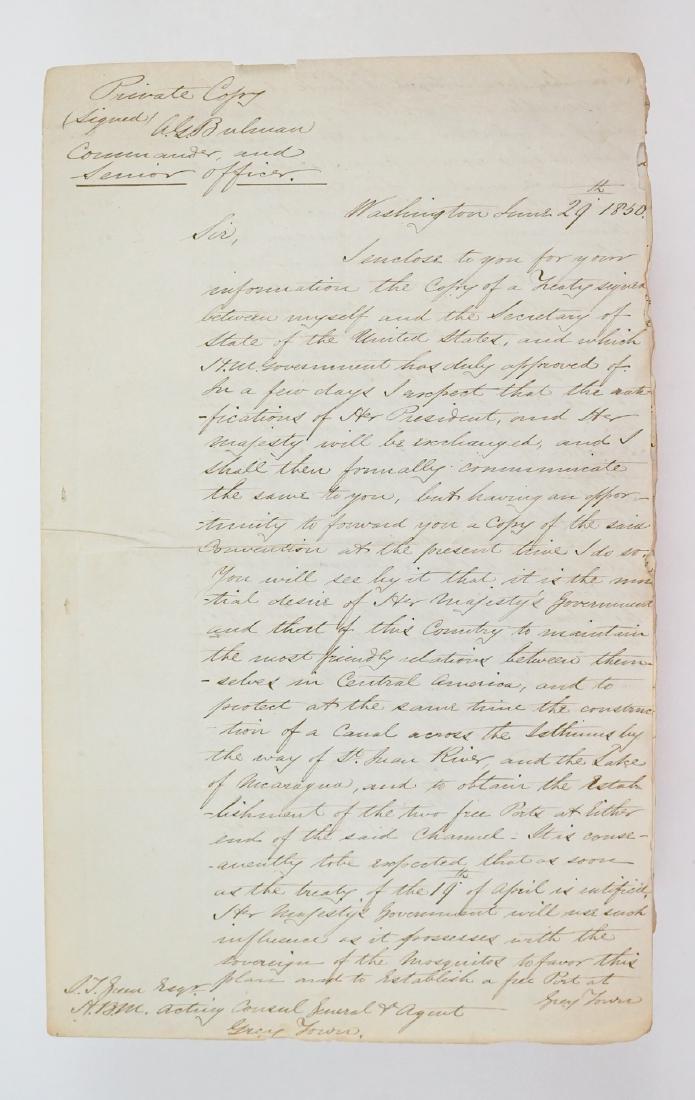 Private Copy
(Signed) A. G. Bulman
Commander, and
Senior Officer.
Washington June 29th 1850.
Sir,
I enclose to you for your
information the Copy of a Treaty signed
between myself and the Secretary of
State of the United States, and which
H.M. Government has duly approved of.
In a few days I expect that the rati-
-fications of Her President, and Her
Majesty will be exchanged, and I
shall then formally communicate
the same to you, but having an oppor-
-tunity to forward you a Copy of the said
Convention at the present time I do so.
You will see by it that it is the mu
-tial desire of Her Majesty's Government
and that of this Country to maintain
the most friendly relations between them-
-selves in Central America, and to
protect at the same time the construc-
-tion of a Canal across the Isthmus by
the way of St. Juan River, and the Lake
of Nicaragua, and to obtain the Estab
-lishment of the two free Ports at Either
end of the said Channel - It is conse-
-quently to be expected that as soon
as the treaty of the 19th of April is ratified,
Her Majesty's Government will use such
influence as it possesses with the
sovereign of the Mosquitos to favor this
plan and to Establish a free Port at
Grey Town
Esqr.
H.B.M. Acting Consul General & Agent
Grey Town.